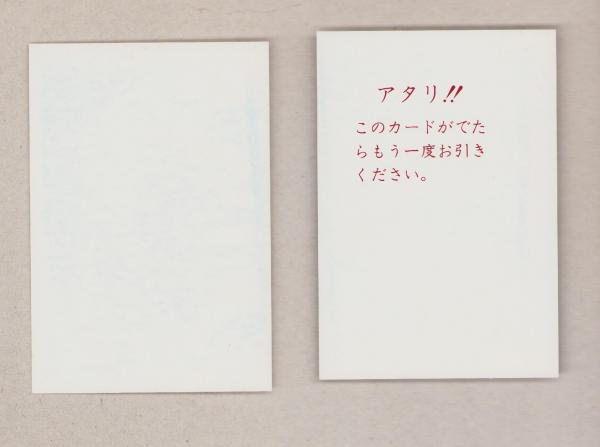 アタリ!!
このカードがでた
らもう一度お引き
ください。